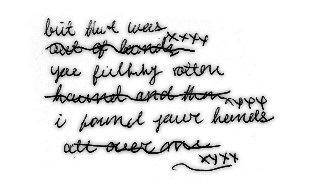 but that was
out of hands xxxx
you filthy rotten
hound and then
i found your hands xxxx
all over me
xxxx